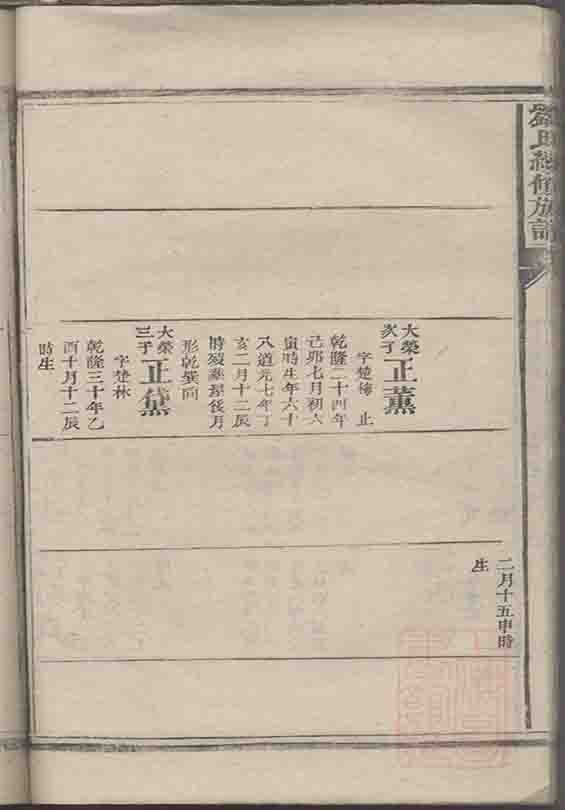 氏續修族譜
二月十五申時
生
大榮
次子
正薰
字楚梅 止
乾隆二十四年
己卯七月初六
寅時生年六十
八道光七年丁
亥二月十二辰
時歿葬屋後月
形乾巽向
大榮
三子
正黛
字楚林
乾隆三十年乙
酉十月十二辰
時生